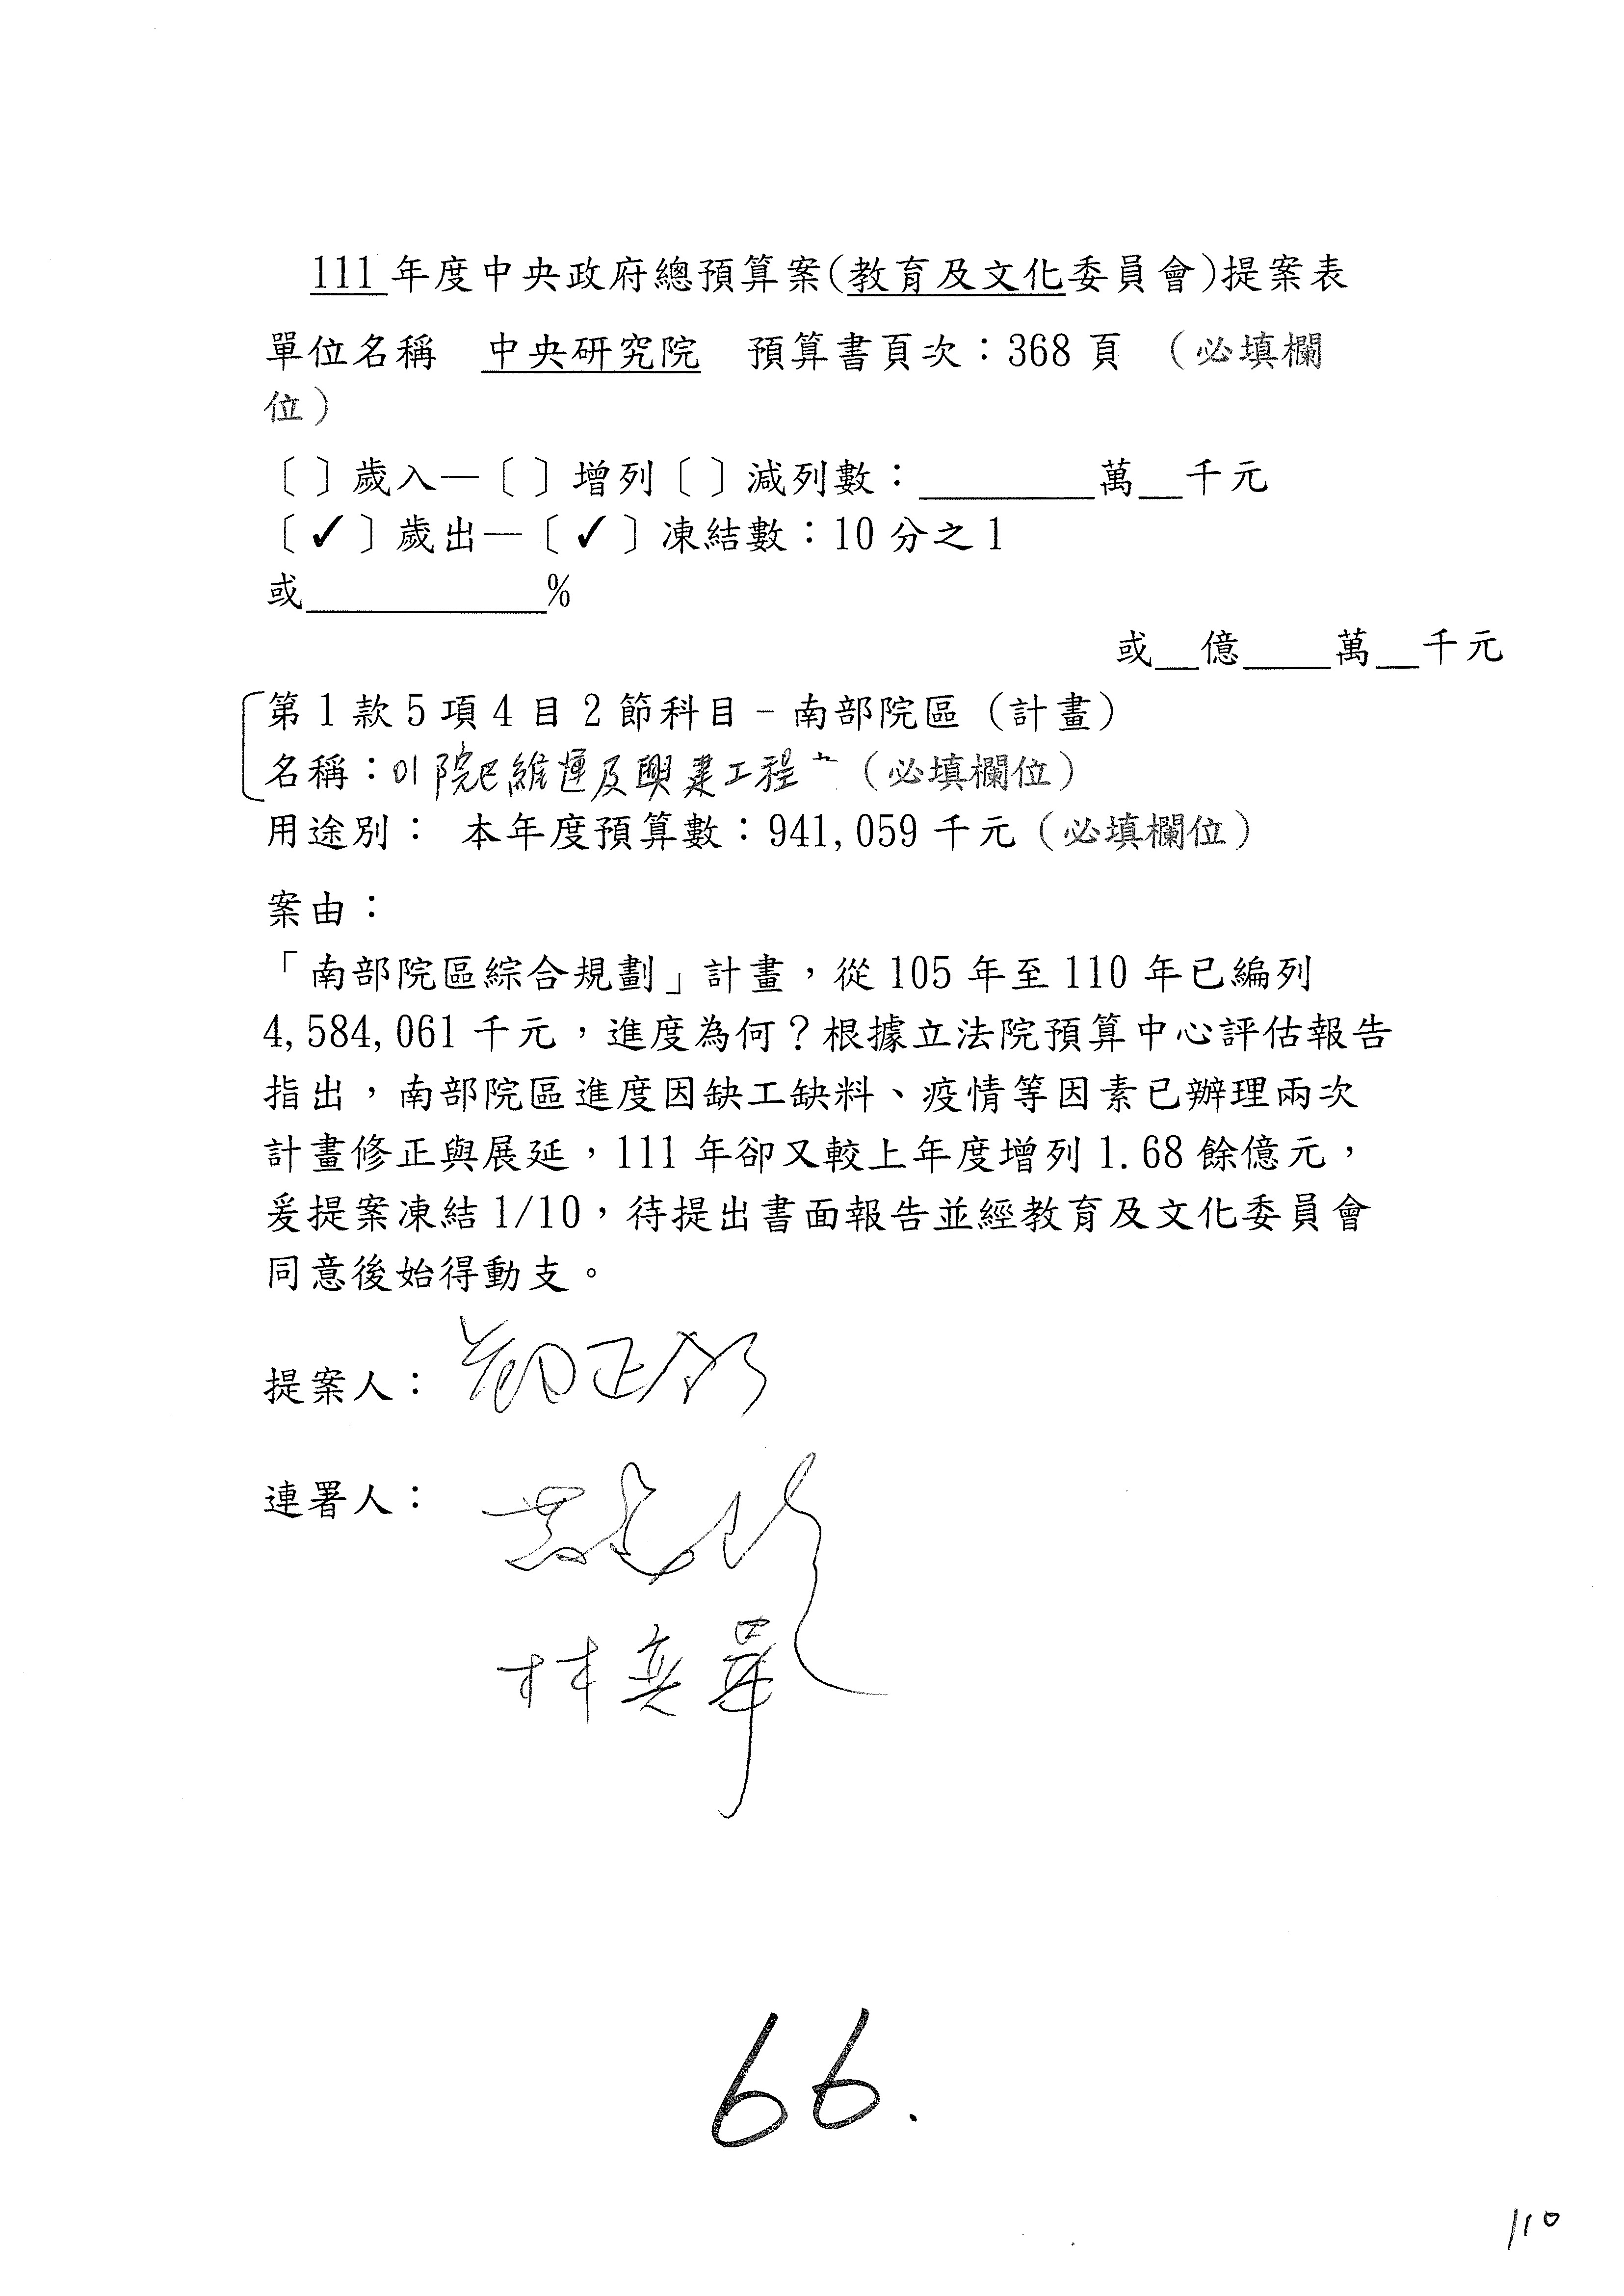 111 年度中央政府總預算案(教育及文化委員會)提案表
單位名稱 中央研究院 預算書頁次：368 頁 （必填欄
位）
〔 〕歲入—〔 〕增列〔 〕減列數：________萬__千元
〔✓〕歲出—〔✓〕凍結數：10 分之 1
或___________%
或__億____萬__千元
第 1 款 5 項 4 目 2 節科目－南部院區（計畫）
名稱：01院區維運及興建工程（必填欄位）
用途別： 本年度預算數：941,059 千元（必填欄位）
案由：
「南部院區綜合規劃」計畫，從 105 年至 110 年已編列
4,584,061 千元，進度為何？根據立法院預算中心評估報告
指出，南部院區進度因缺工缺料、疫情等因素已辦理兩次
計畫修正與展延，111 年卻又較上年度增列 1.68 餘億元，
爰提案凍結 1/10，待提出書面報告並經教育及文化委員會
同意後始得動支。
提案人：鄭正鈐
連署人：
林奕華
66.
110